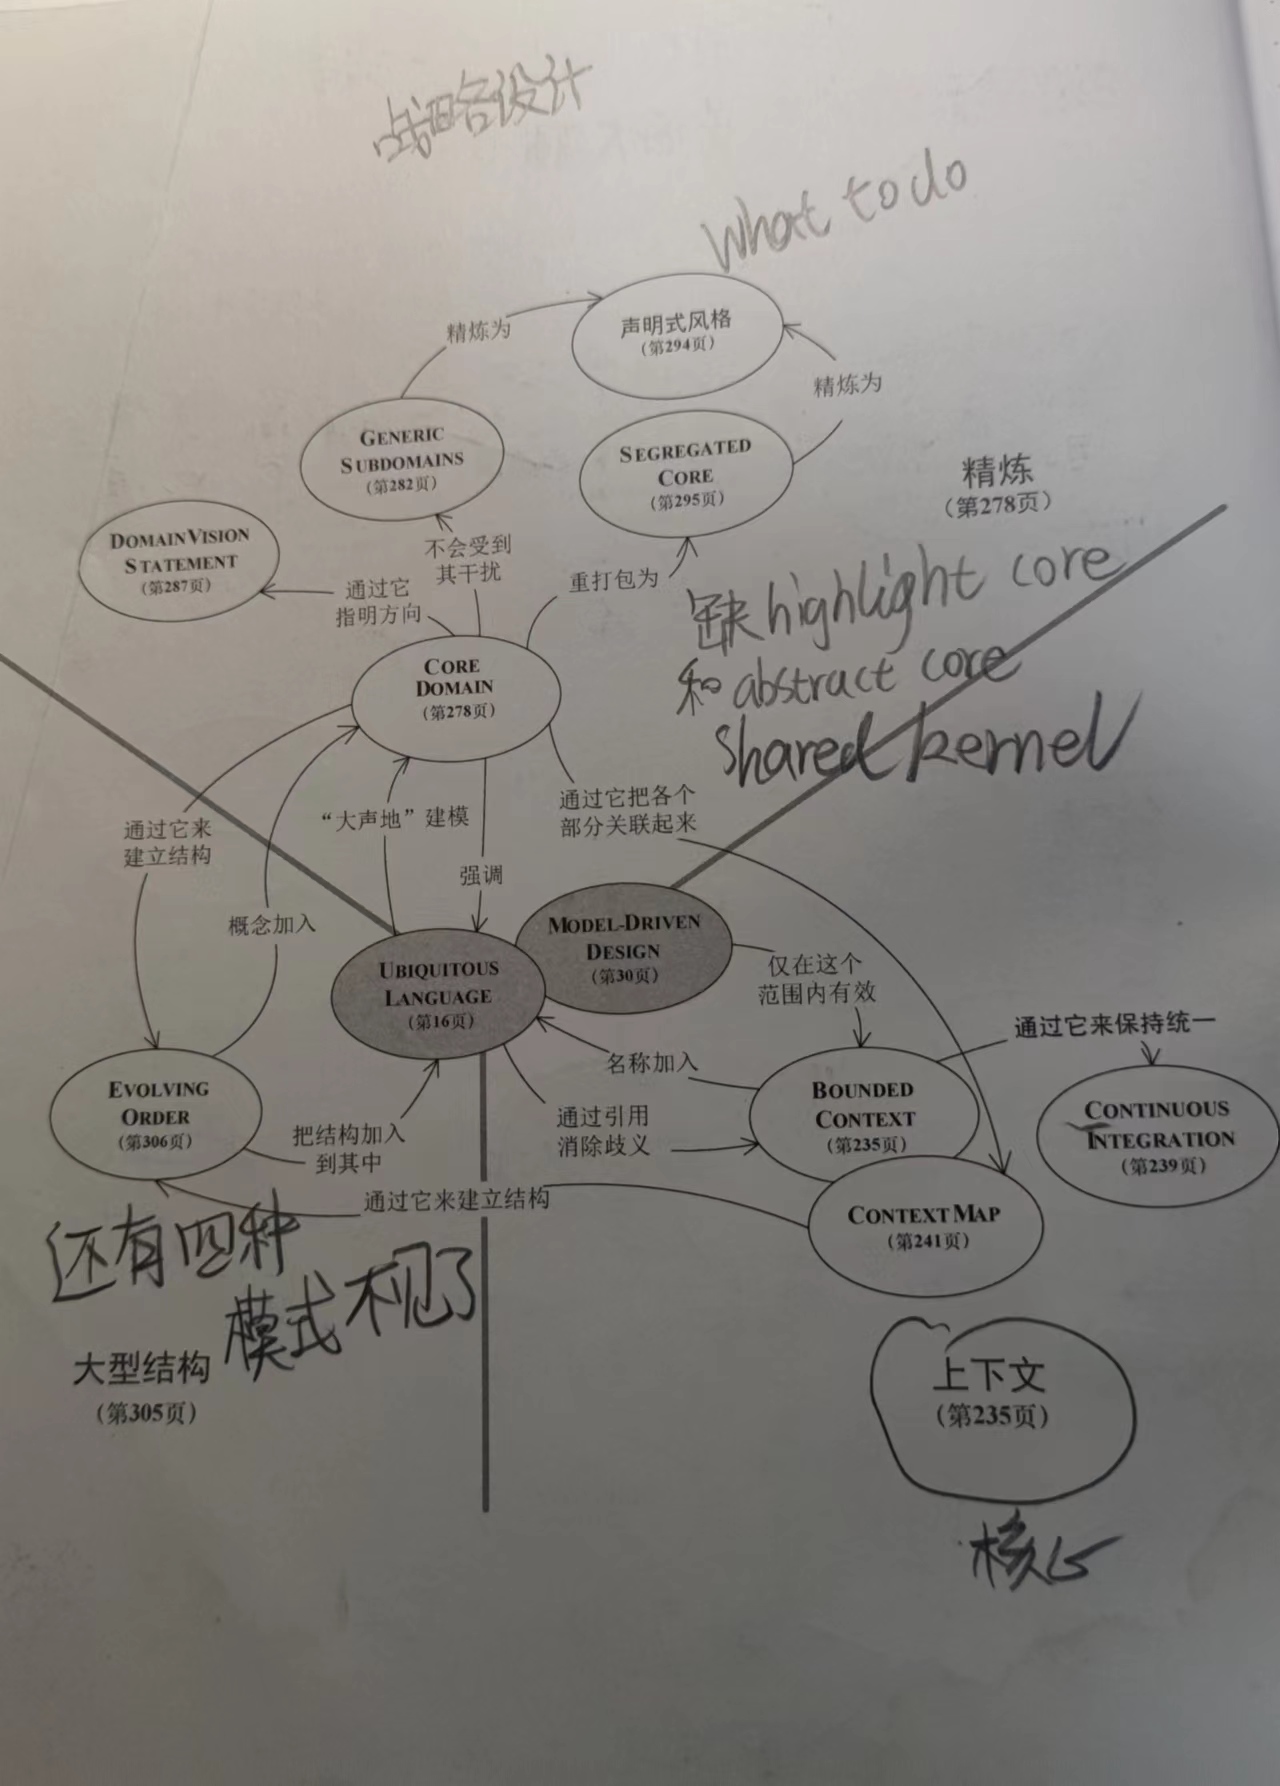 战略设计
What to do
精炼为
声明式风格
（第294页）
精炼为
GENERIC
SUBDOMAINS
（第282页）
SEGREGATED
CORE
（第295页）
精炼
（第278页）
DOMAIN VISION
STATEMENT
（第287页）
不会受到
其干扰
通过它
指明方向
重打包为
缺highlight core
和abstract core
shared kernel
CORE
DOMAIN
（第278页）
通过它来
建立结构
“大声地”建模
通过它把各个
部分关联起来
强调
概念加入
MODEL-DRIVEN
DESIGN
（第30页）
UBIQUITOUS
LANGUAGE
（第16页）
仅在这个
范围内有效
通过它来保持统一
名称加入
EVOLVING
ORDER
（第306页）
把结构加入
到其中
通过引用
消除歧义
BOUNDED
CONTEXT
（第235页）
CONTINUOUS
INTEGRATION
（第239页）
通过它来建立结构
CONTEXT MAP
（第241页）
还有四种
模式不见了
大型结构
（第305页）
上下文
（第235页）
核心